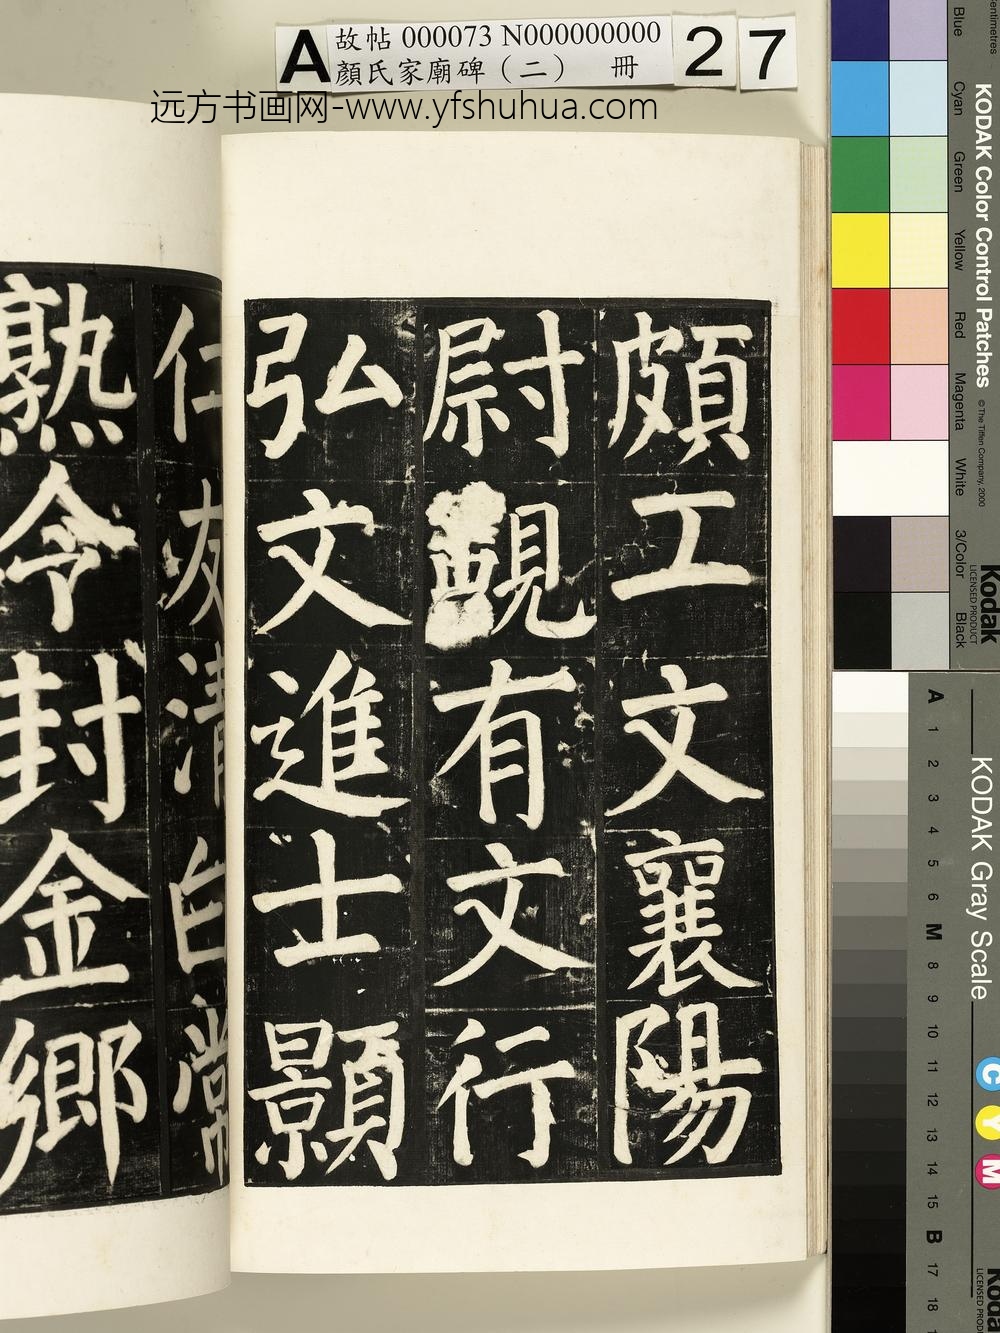 A 故帖 000073 N000000000 27
顏氏家廟碑（二） 冊
远方书画网-www.yfshuhua.com
頗工文襄陽
尉覿有文行
弘文進士顥
仁友清白常
熟令封金鄉
Centimetres
Blue Cyan Green Yellow Red Magenta White 3/Color Black
KODAK Color Control Patches © The Tiffen Company, 2000
Kodak
LICENSED PRODUCT
A 1 2 3 4 5 6 M 8 9 10 11 12 13 14 15 B 17 18
KODAK Gray Scale
C Y M
Koda
LICENSED PROD